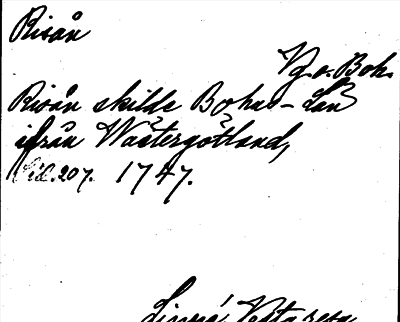 Risån
Vg. o. Boh.
Risån skilde Bohus-Län
ifrån Wästergötland,
Sid. 207. 1747.
Linné, Västaresa